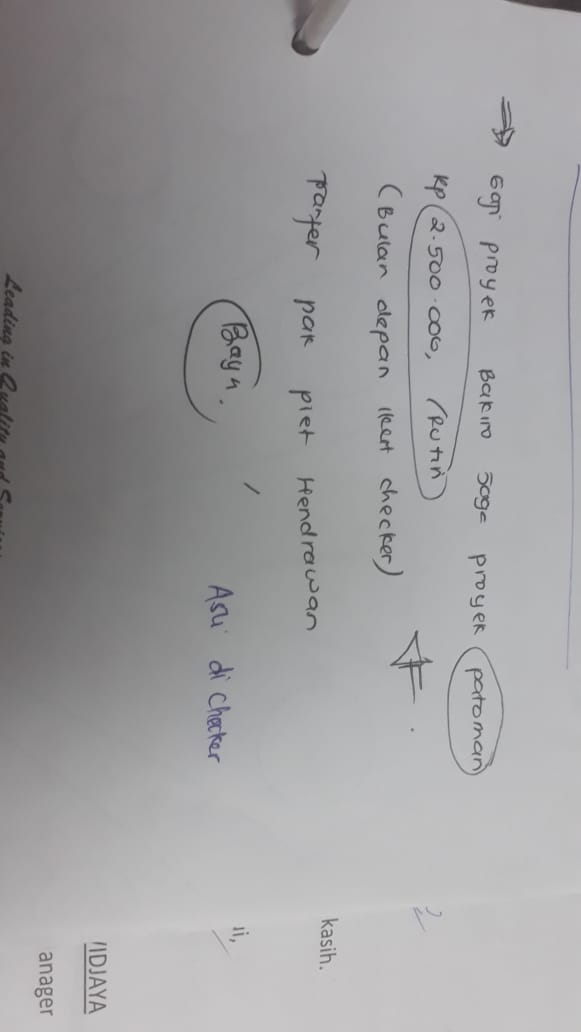 ⇒ Gaji proyek Bakiro Jaga proyek patoman
Rp 2.500.000, / Rutin
(Bulan depan ikut checker)
Tranfer pak piet Hendrawan
Bayu.
Asli di Checker
kasih.
IDJAYA
anager
Leading in Quality and